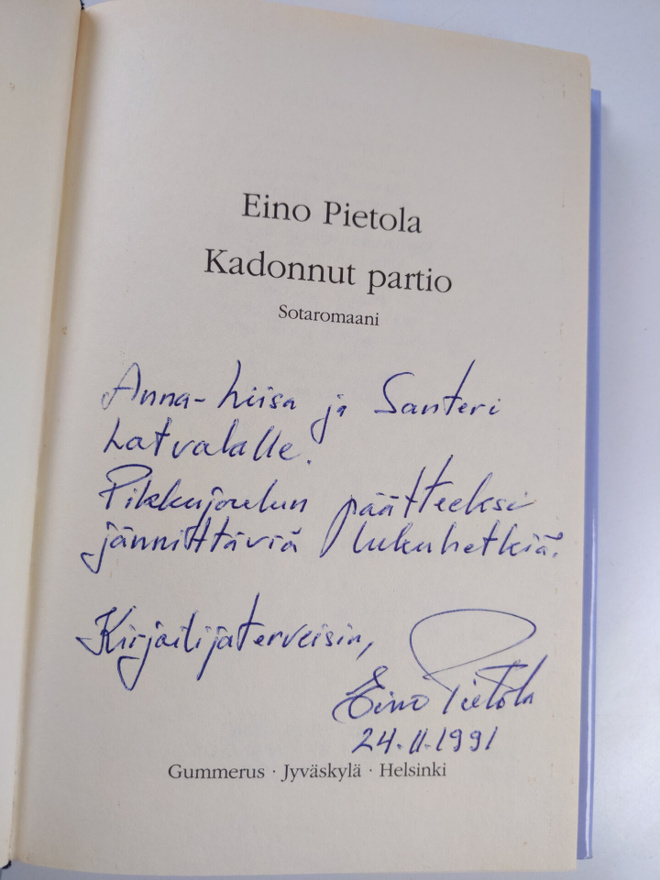 Eino Pietola
Kadonnut partio
Sotaromaani
Anna-Liisa ja Santeri
Latvalalle.
Pikkujoulun päätteeksi
jännittäviä lukuhetkiä.
Kirjailijaterveisin,
Eino Pietola
24.11.1991
Gummerus · Jyväskylä · Helsinki